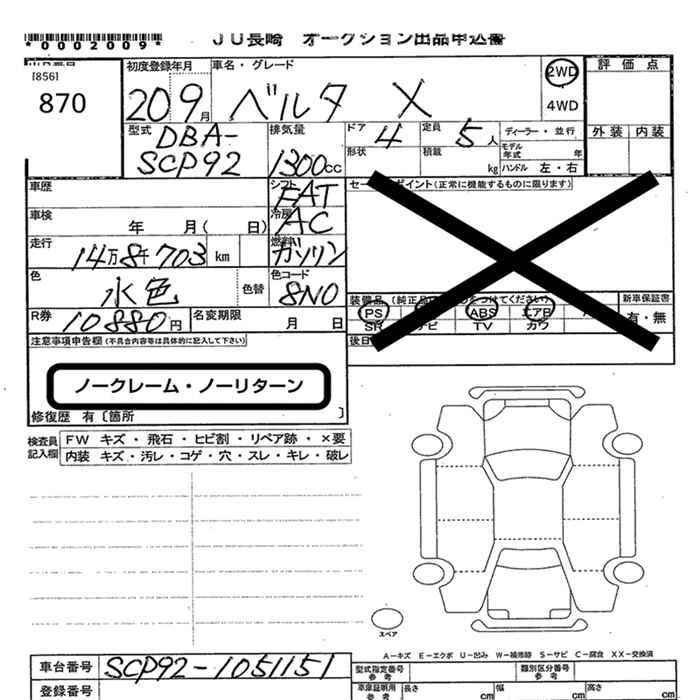 JU長崎 オークション出品申込書
*0002009*
[856]
870
初度登録年月
20 9月
車名・グレード
ベルタ X
2WD
4WD
評価点
外装 内装
型式
DBA-
SCP92
排気量
1300cc
ドア 4
形状
定員 5人
積載 kg
ディーラー・並行
モデル年式 年
ハンドル 左・右
車歴
シフト
FAT
セールスポイント(正常に機能するものに限ります)
車検 年 月( 日)
冷房
AC
走行
14万8千703 km
燃料
ガソリン
色
水色
色替
色コード
8N0
装備品
新車保証書
有・無
PS
ABS
エアB
SR
ナビ
TV
カワ
R券
10880円
名変期限 月 日
後日
注意事項申告欄(不具合内容等は具体的に記入して下さい)
ノークレーム・ノーリターン
修復歴 有〔箇所 〕
検査員記入欄
FW キズ・飛石・ヒビ割・リペア跡・×要
内装 キズ・汚レ・コゲ・穴・スレ・キレ・破レ
スペア
A-キズ E-エクボ U-凹み W-補修跡 S-サビ C-腐食 XX-交換済
車台番号 SCP92-1051151
登録番号
型式指定番号
参考
類別区分番号
参考
車庫証明用
参考
長さ cm
幅 cm
高さ cm